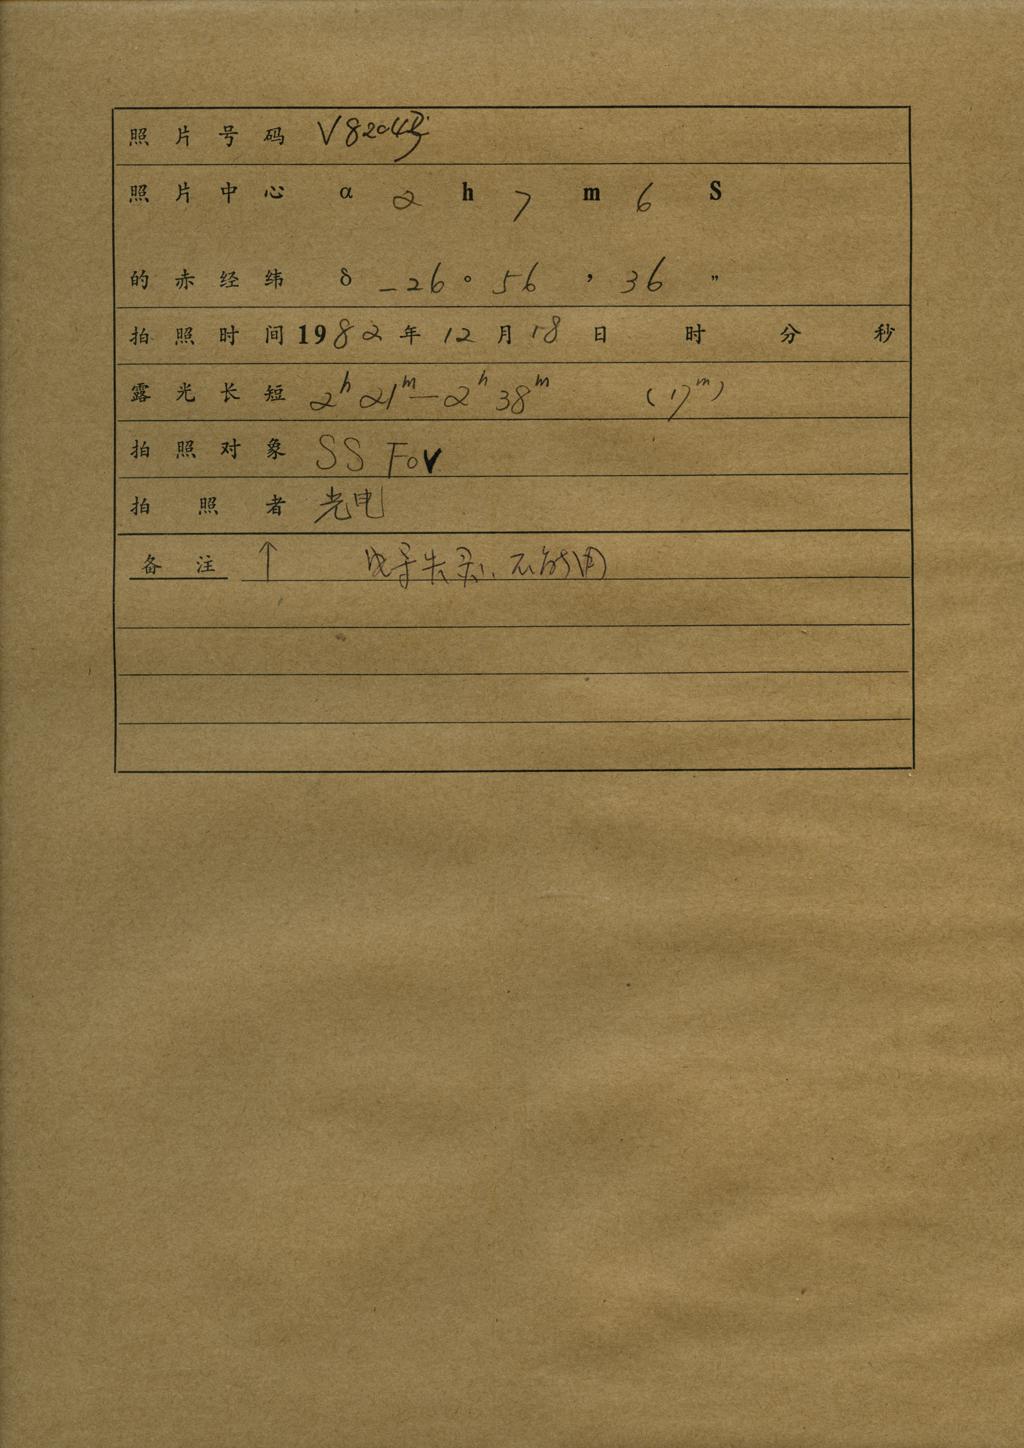 照片号码 V8204号
照片中心 α 2 h 7 m 6 S
的赤经纬 δ -26° 56 ' 36 "
拍照时间 1982年12月18日 时 分 秒
露光长短 2h 21m — 2h 38m (17m)
拍照对象 SS For
拍照者 光电
备注 ↑ 导失灵、不能用